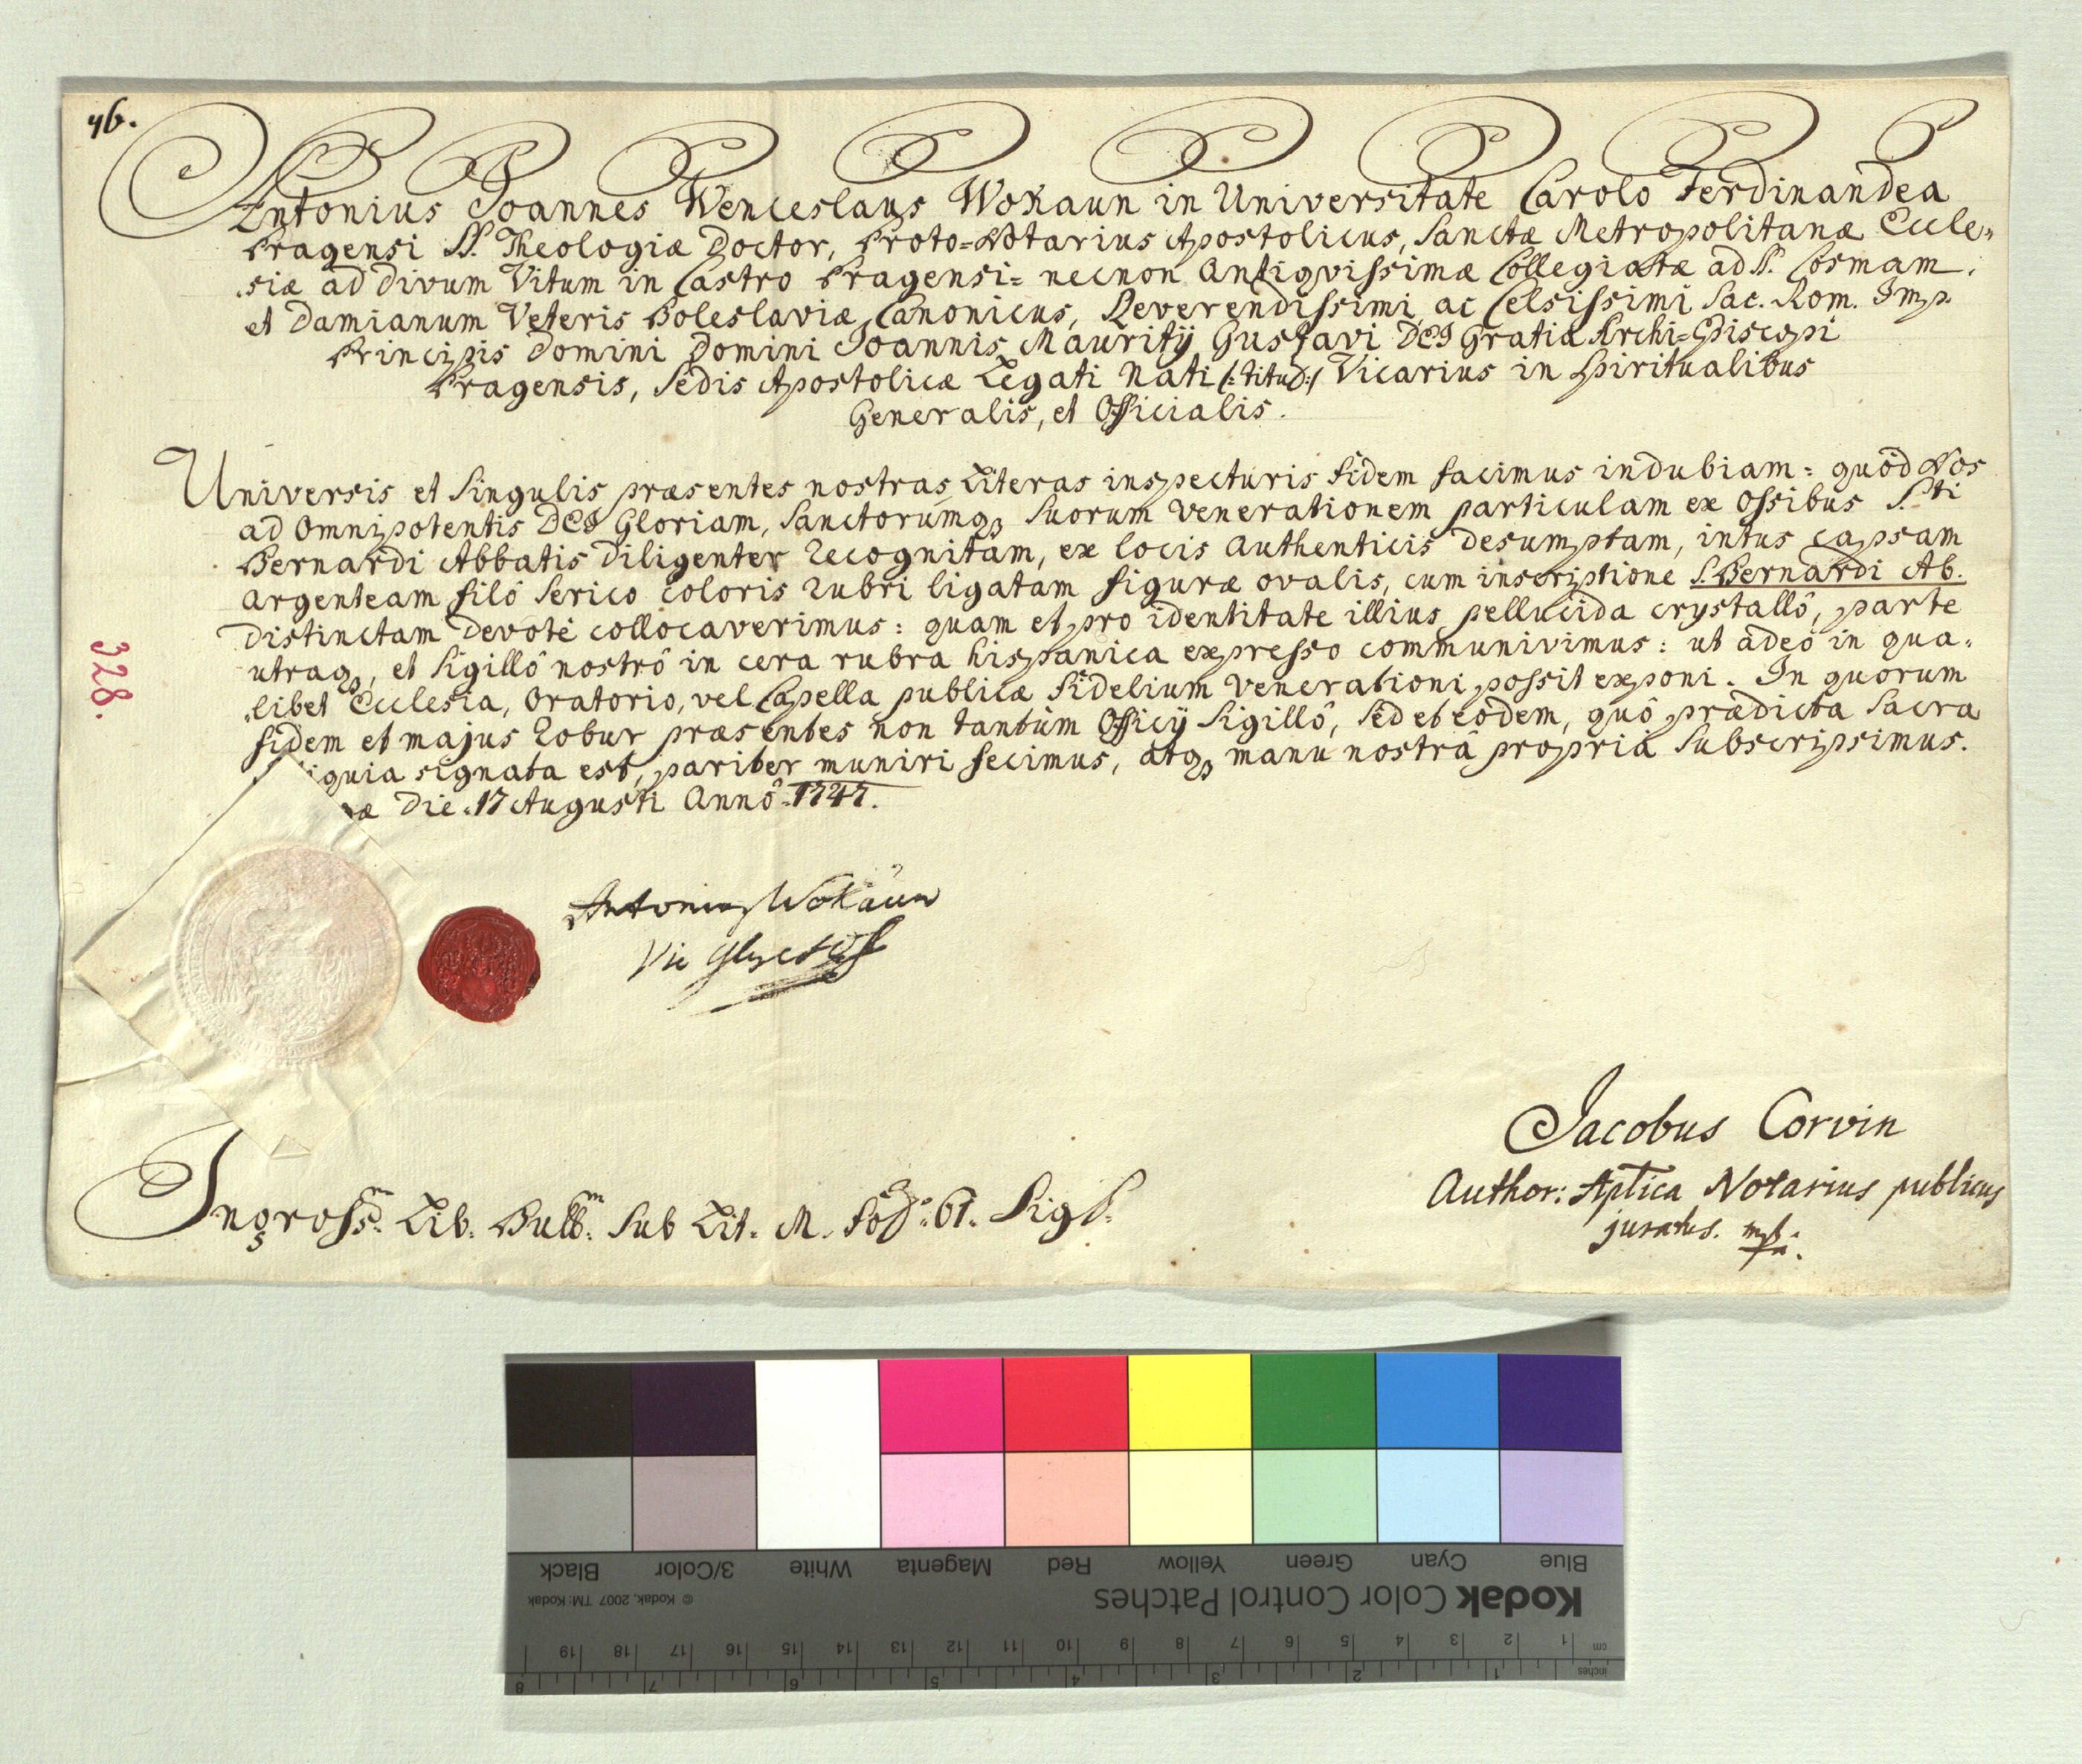 46.
Antonius Joannes Wenceslaus Wokaun in Universitate Carolo Ferdinandea
Pragensi SS. Theologiæ Doctor, Proto=Notarius Apostolicus, Sanctæ Metropolitanæ Eccle„
„siæ ad Divum Vitum in Castro Pragensi= necnon Antiqvissimæ Collegiatæ ad S. Cosmam,
et Damianum Veteris Boleslaviæ, Canonicus, Reverendissimi, ac Celsissimi Sac. Rom. Imp.
Principis Domini Domini Joannis Mauritÿ Gustavi DEI Gratia Archi=Episcopi
Pragensis, Sedis Apostolicæ Legati Nati (: titul :) Vicarius in Spiritualibus
Generalis, et Officialis.
Universis et Singulis præsentes nostras Literas inspecturis fidem facimus indubiam: quòd Nos
ad Omnipotentis DEI Gloriam, Sanctorumq3 Suorum Venerationem particulam ex Ossibus S.ti
Bernardi Abbatis Diligenter recognitam, ex locis Authenticis Desumptam, intus capsam
argenteam filô Serico coloris rubri ligatam figuræ ovalis, cum inscriptione S. Bernardi Ab.
Distinctam Devotè collocaverimus: quam et pro identitate illius pellucida crystallô, parte
utraq3, et Sigillô nostrô in cera rubra hispanica expresso communivimus: ut adeò in qua„
„libet Ecclesia, Oratorio, vel Capella publicæ fidelium Venerationi possit exponi. In quorum
fidem et majus robur præsentes non tantùm Officÿ Sigillô, Sed et eôdem, quô prædicta Sacra
iquia signata est, pariter muniri fecimus, atq3 manu nostrâ propriâ Subscripsimus.
æ Die. 17 Augusti Annô. 1747.
328.
Antonius Wokaun
Vic
Jacobus Corvin
Author: Aptica Notarius publicus
juratus. mp.
Ingross. Lib. Bull. Sub Lit. M. fol. 61. Sig S.
Blue Cyan Green Yellow Red Magenta White 3/Color Black
Kodak Color Control Patches
© Kodak, 2007 TM: Kodak
cm 1 2 3 4 5 6 7 8 9 10 11 12 13 14 15 16 17 18 19
inches 1 2 3 4 5 6 7 8